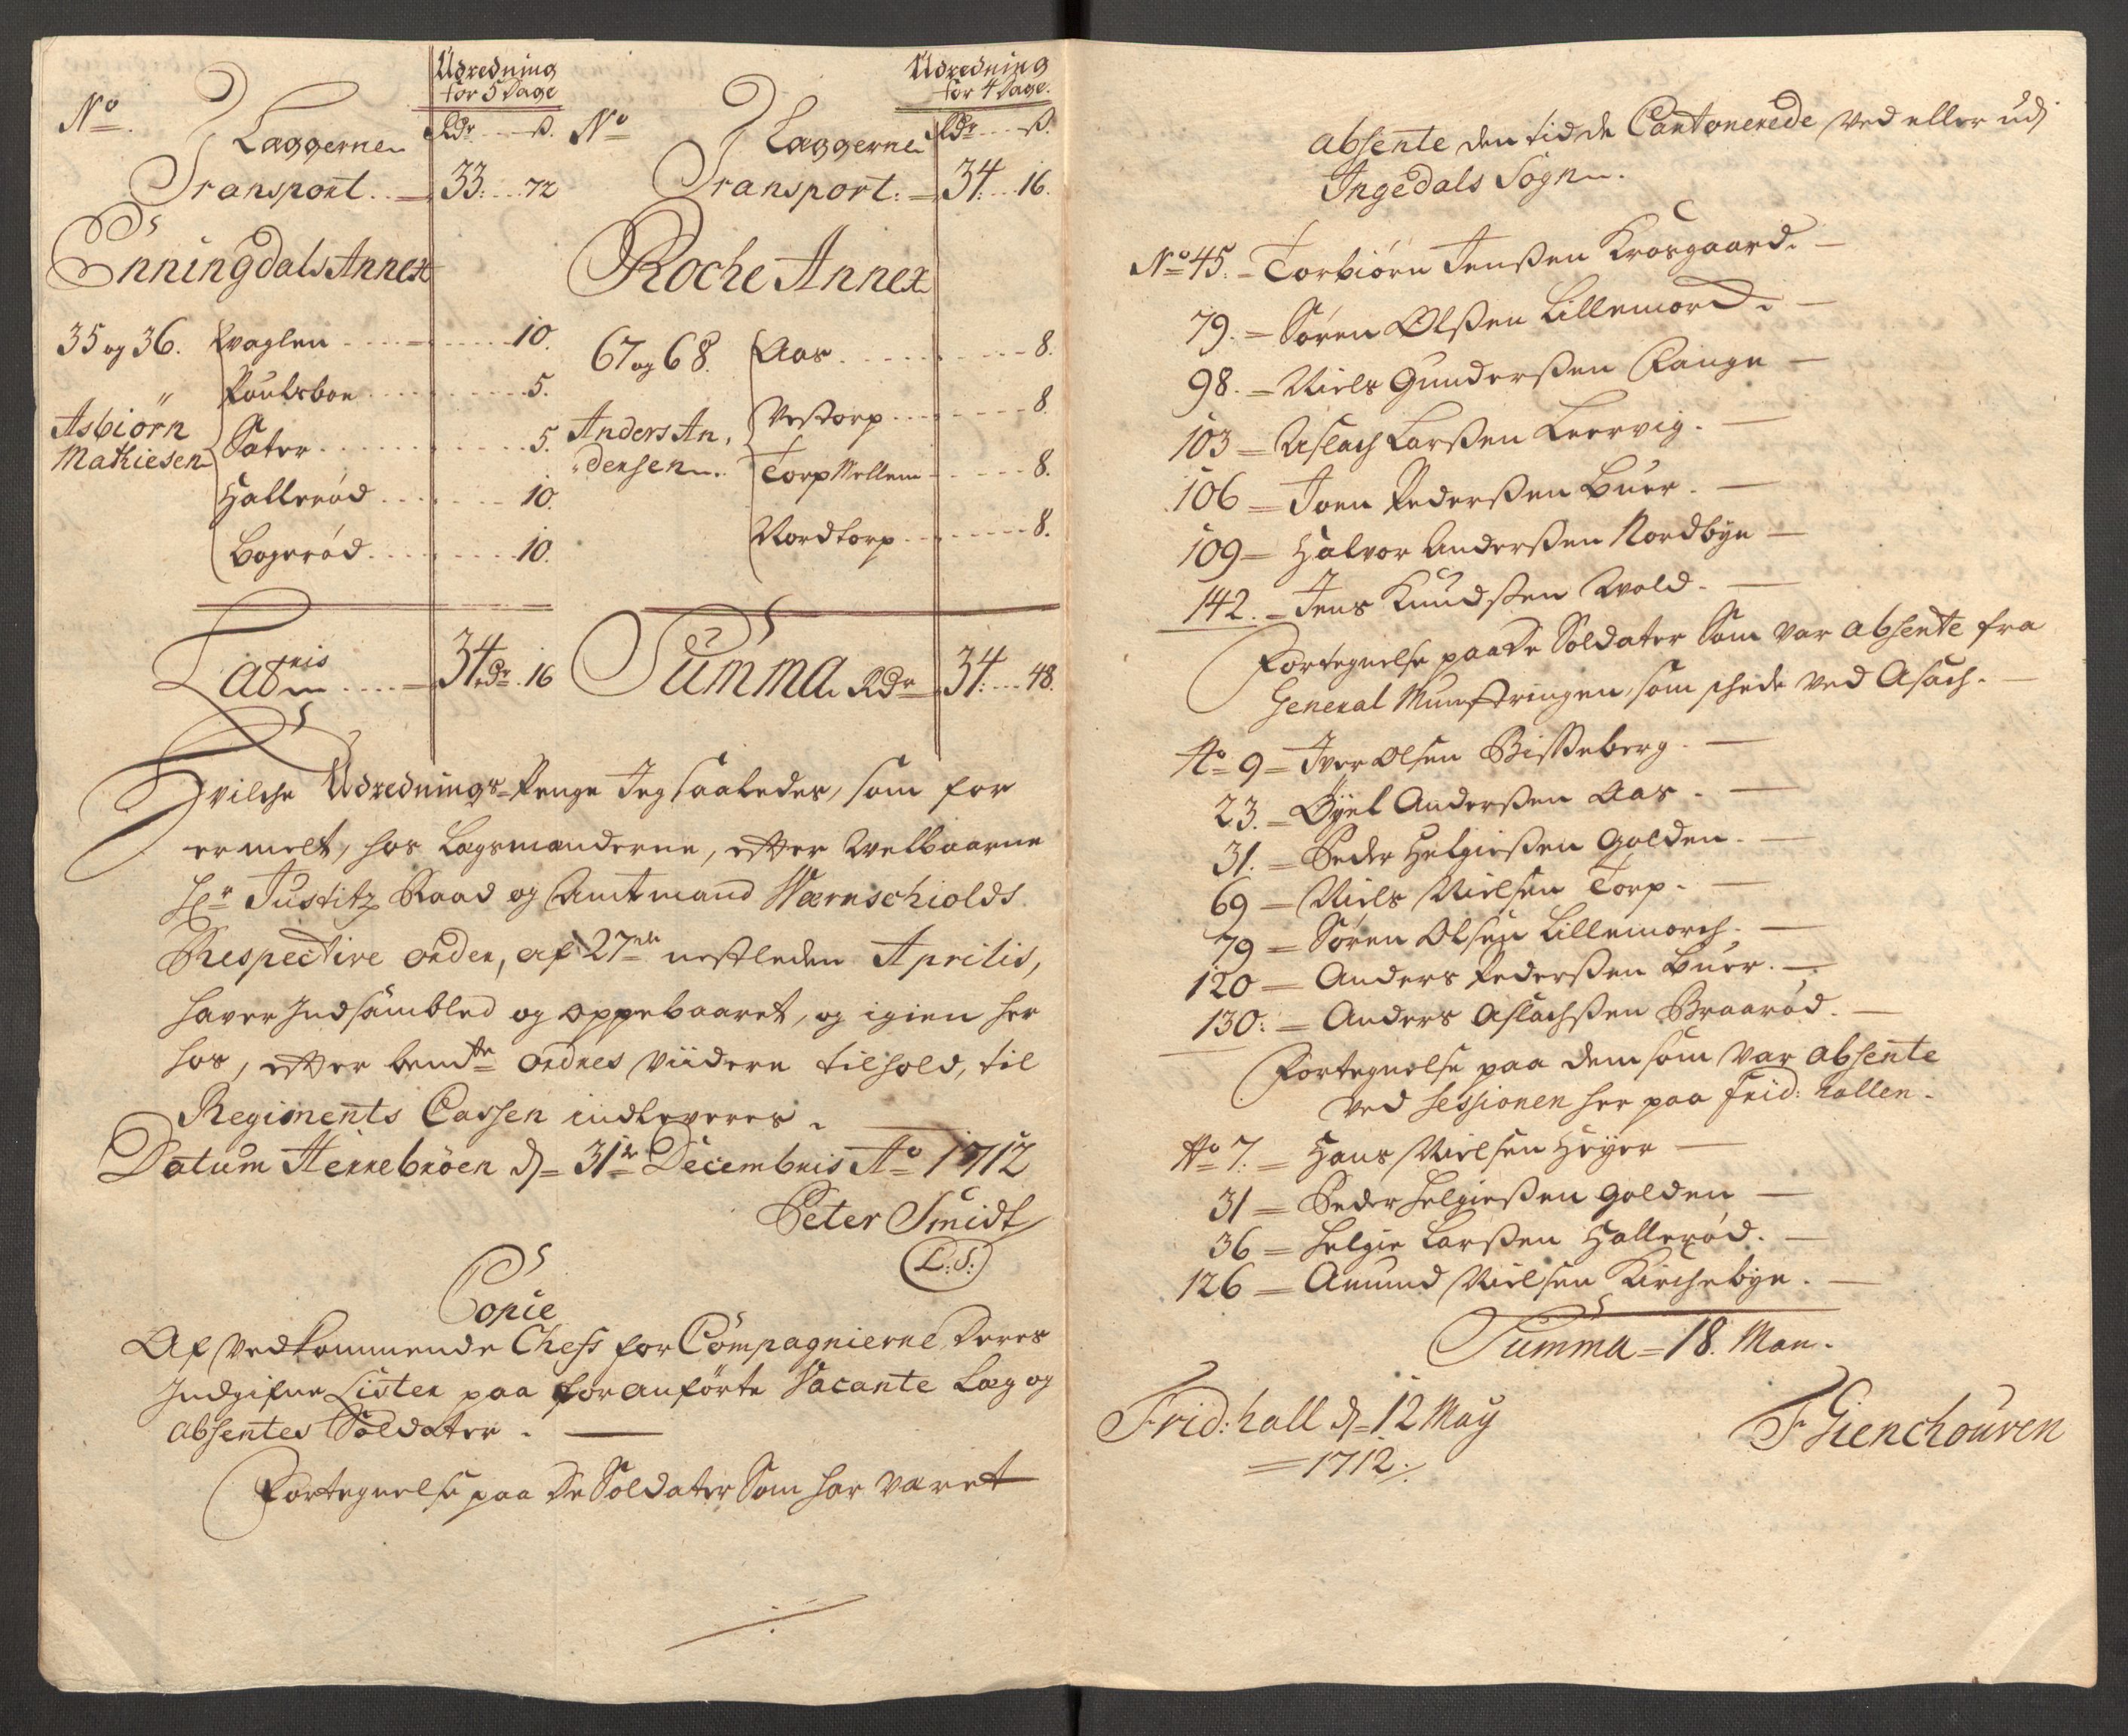 Udredning
for 5 Dage
No. Læggerne Rdr ß.
Transport. 33: 72
Enningdals Annex
35 og 36. Kvaglen 10.
" Poulsboe 5.
Asbiørn Sæter 5.
Mathiesen Hallerød 10.
Bogerød 10.
Latnis 34 Rdr. 16
Udredning
for 4 Dage.
No Læggerne Rdr ß.
Transport. 34. 16.
Roche Annex
67 og 68. Aas 8.
Vestorp 8.
Anders An, Torp Mellem 8.
"dersen. Nordtorp 8.
Summa Rdr 34. 48.
Hvilche Udrednings-Penge Jeg saaledes, som for
ermelt, hos Lægsmænderne, efter Welbaarne
Hr Justitz Raad og Amtmand Wærnschiolds
Respective order, af 27de nestleden Aprilis,
haver Indsamblet og oppebaaret, og igien her
hos, efter bemte ordres viidere tilhold, til
Regiments Cassen indleveres.
Datum Herrebröen d= 31te Decembris Ao 1712
Peter Smidt
(L.S.)
Copie
Af vedkommende Chefs for Compagnierne Deres
Indgifne Lister paa foranførte Vacante Læg og
absentes Soldater.
Fortegnelse paa De Soldater Som har været
absente den tid de Cantonerede ved eller udj
Ingedals Sogn.
No 45. = Torbiørn Jenßen Krosgaard.
79. = Søren Olßen Lillemord.
98. = Niels Gunderßen Range
103 = Aslach Larßen Leervig.
106 = Joen Pederßen Buer.
109 = Halvor Anderßen Nordbye
142. = Jens Knudßen Wold.
Fortegnelse paa De Soldater Som var absente fra
General Munstringen, som skede ved Asach.
No 9 = Iver Olsen Bisseberg.
23. = Øyel Anderßen Aas.
31. = Peder Helgießen Golden.
69 = Niels Nielsen Torp.
79 = Søren Olsen Lillemorch.
120 = Anders Pederßen Buer.
130: = Anders Aslachßen Braarød.
Fortegnelse paa dem som var absente
ved sessionen her paa Frid: hallen.
No 7. = Hans Nielsen Høyer
31 = Peder Helgießen Golden
36 = Helgie Larßen Hallerød.
126 = Amund Nielsen Kirchebye.
Summa = 18. Man.
Frid: hall d= 12 May
= 1712.
F Gienchouven